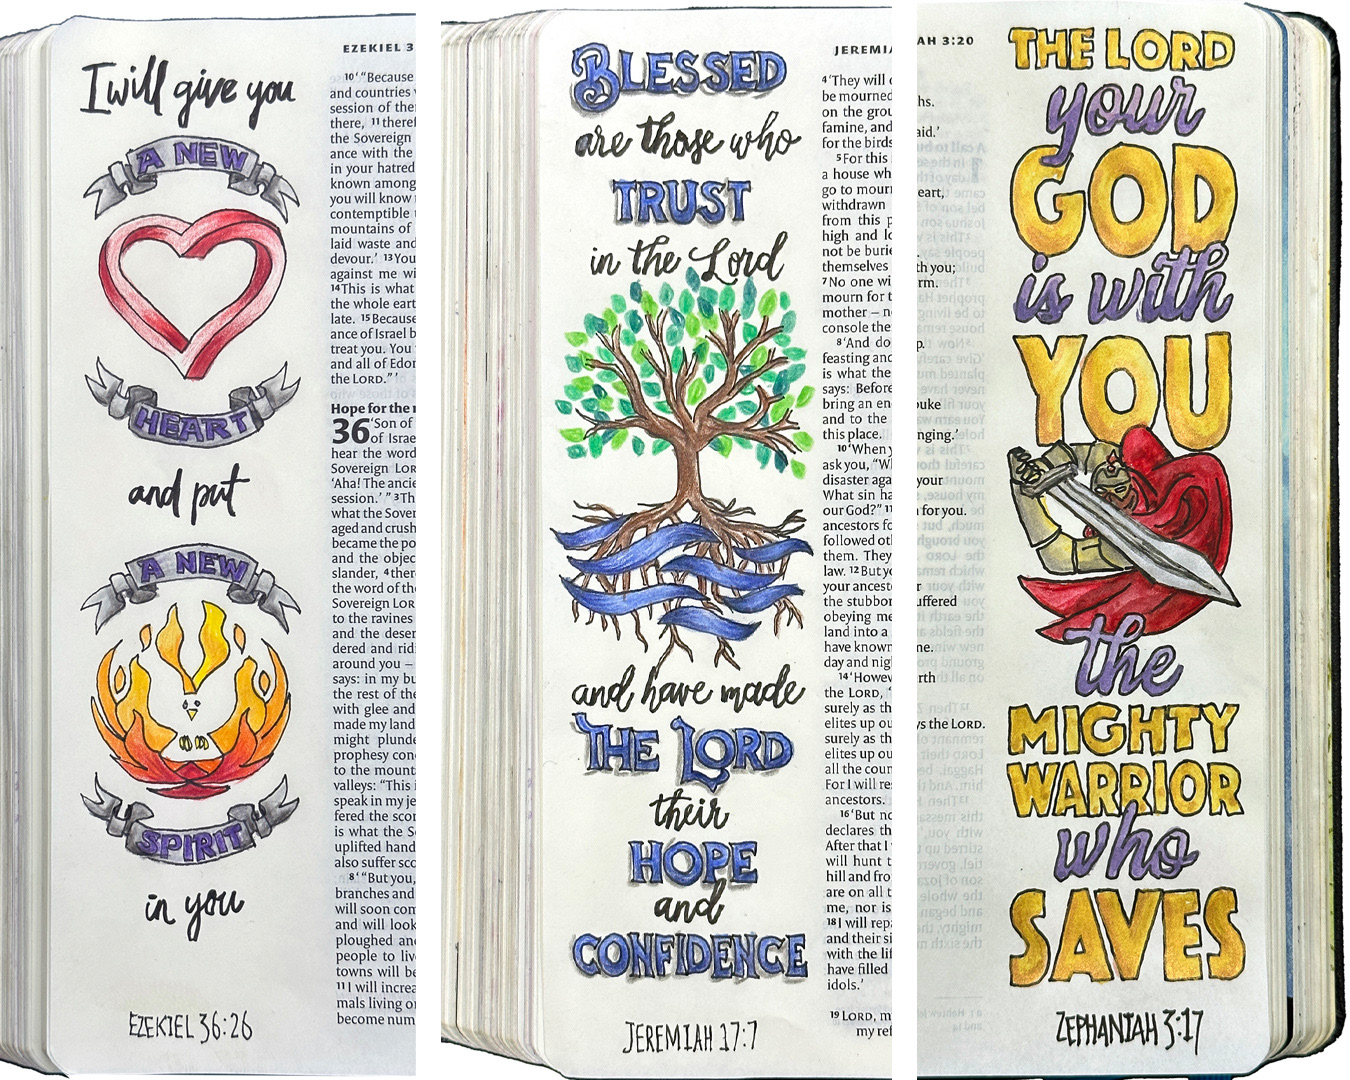 I will give you
A NEW
HEART
and put
A NEW
SPIRIT
in you
EZEKIEL 36:26
EZEKIEL 3
10 ‘“Because
and countries
session of ther
there, 11 theref
the Sovereign
ance with the
in your hatred
known among
you will know
contemptible
mountains of
laid waste and
devour.’ 13 You
against me wi
14 This is what
the whole eart
late. 15 Because
ance of Israel b
treat you. You
and all of Edor
the LORD.”’
Hope for the
36 ‘Son of
of Israe
hear the word
Sovereign LOR
‘Aha! The ancie
session.’” 3 Th
what the Sover
aged and crush
became the po
and the objec
slander, 4 ther
the word of the
Sovereign LOR
to the ravines
and the deser
dered and ridi
around you –
says: in my bu
the rest of the
with glee and
made my land
might plunde
prophesy conc
to the mount
valleys: “This i
speak in my je
fered the scor
is what the So
uplifted hand
also suffer sco
8 ‘“But you,
branches and
will soon com
and will look
ploughed and
people to live
towns will be
11 I will increa
mals living or
become num
BLESSED
are those who
TRUST
in the Lord
and have made
THE LORD
their
HOPE
and
CONFIDENCE
JEREMIAH 17:7
JEREMIA
4 ‘They will d
be mourned
on the grou
famine, and
for the birds
5 For this
a house wh
go to mourn
withdrawn
from this p
high and lo
not be burie
themselves
7 No one wi
mourn for t
mother – no
console the
8 ‘And do
feasting and
is what the
says: Before
bring an en
and to the
this place.
10 ‘When y
ask you, “Wh
disaster aga
What sin ha
our God?” 11
ancestors fo
followed oth
them. They
law. 12 But yo
your ancest
the stubbor
obeying me
land into a
have known
day and nig
14 ‘Howev
the LORD, “
surely as th
elites up ou
surely as th
elites up ou
all the coun
For I will res
ancestors.
16 ‘But no
declares th
After that I
will hunt t
hill and fro
are on all t
me, nor is
18 I will repa
and their si
with the lif
have filled
idols.’
19 LORD, m
my ref
AH 3:20
hs.
aid.’
eart,
h you;
rm.
p.
buke
nging.’
your
for you.
r
uffered
me.
rth
ys the LORD.
THE LORD
your
GOD
is with
YOU
the
MIGHTY
WARRIOR
who
SAVES
ZEPHANIAH 3:17